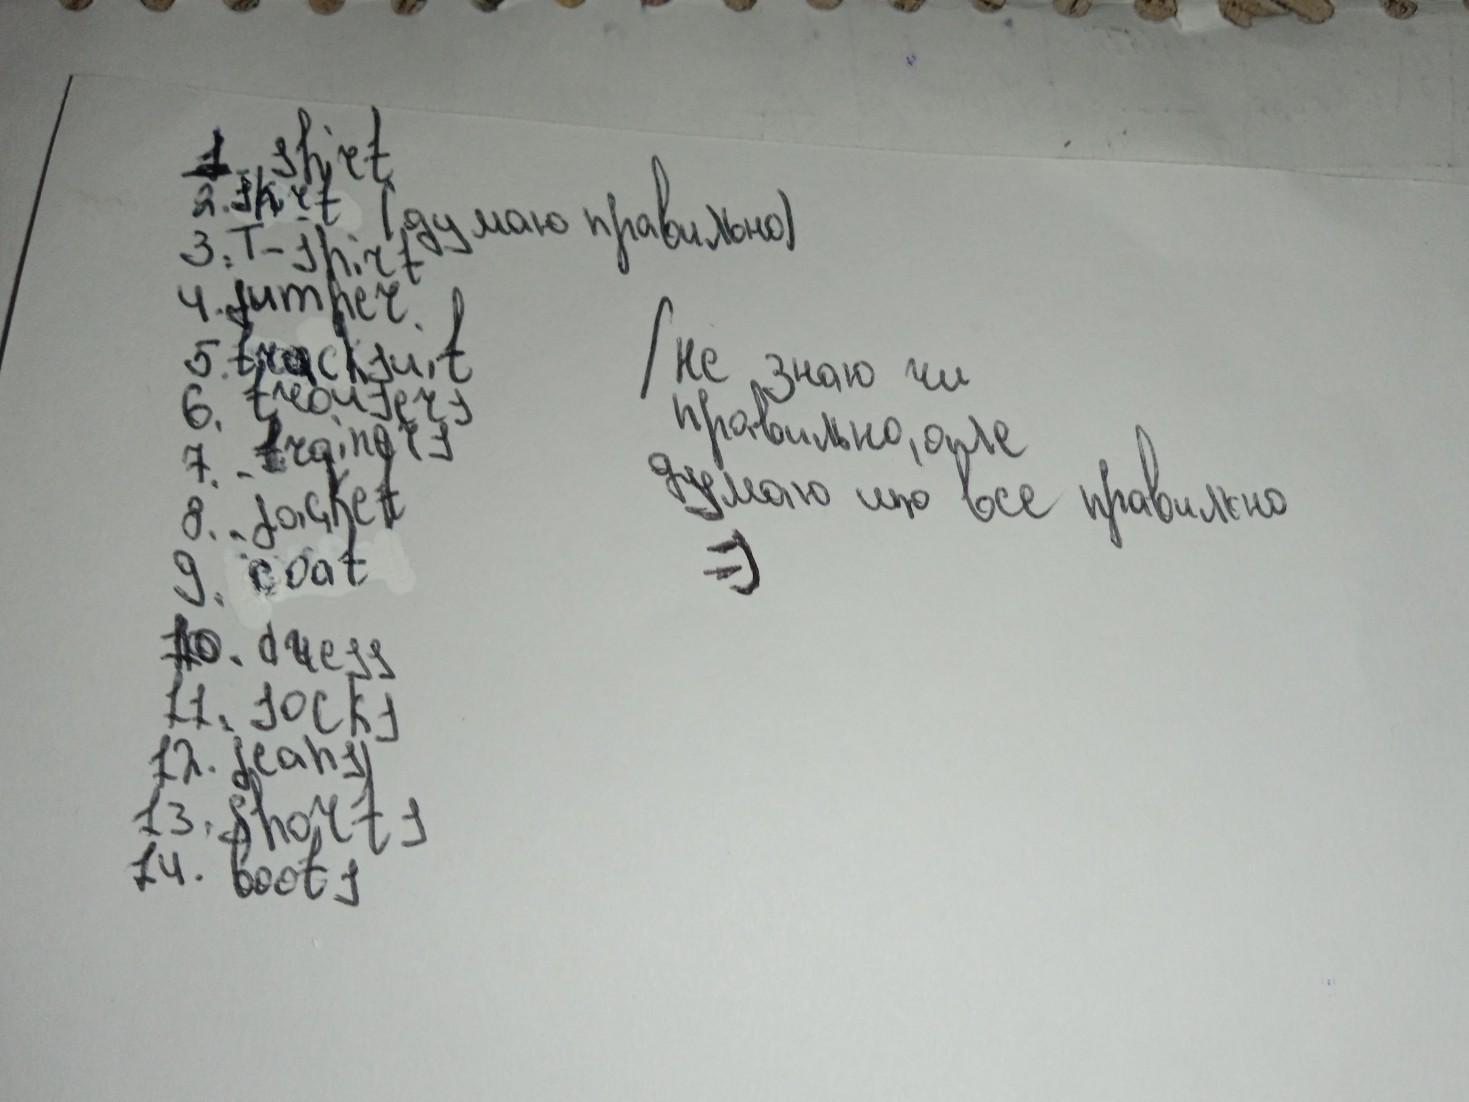 1. shirt
2. skirt (думаю правильно)
3. T-shirt
4. jumper
5. tracksuit
6. trousers
7. trainers
8. jacket
9. coat
10. dress
11. socks
12. jeans
13. shorts
14. boots
(не знаю чи
правильно, але
думаю що все правильно
=)